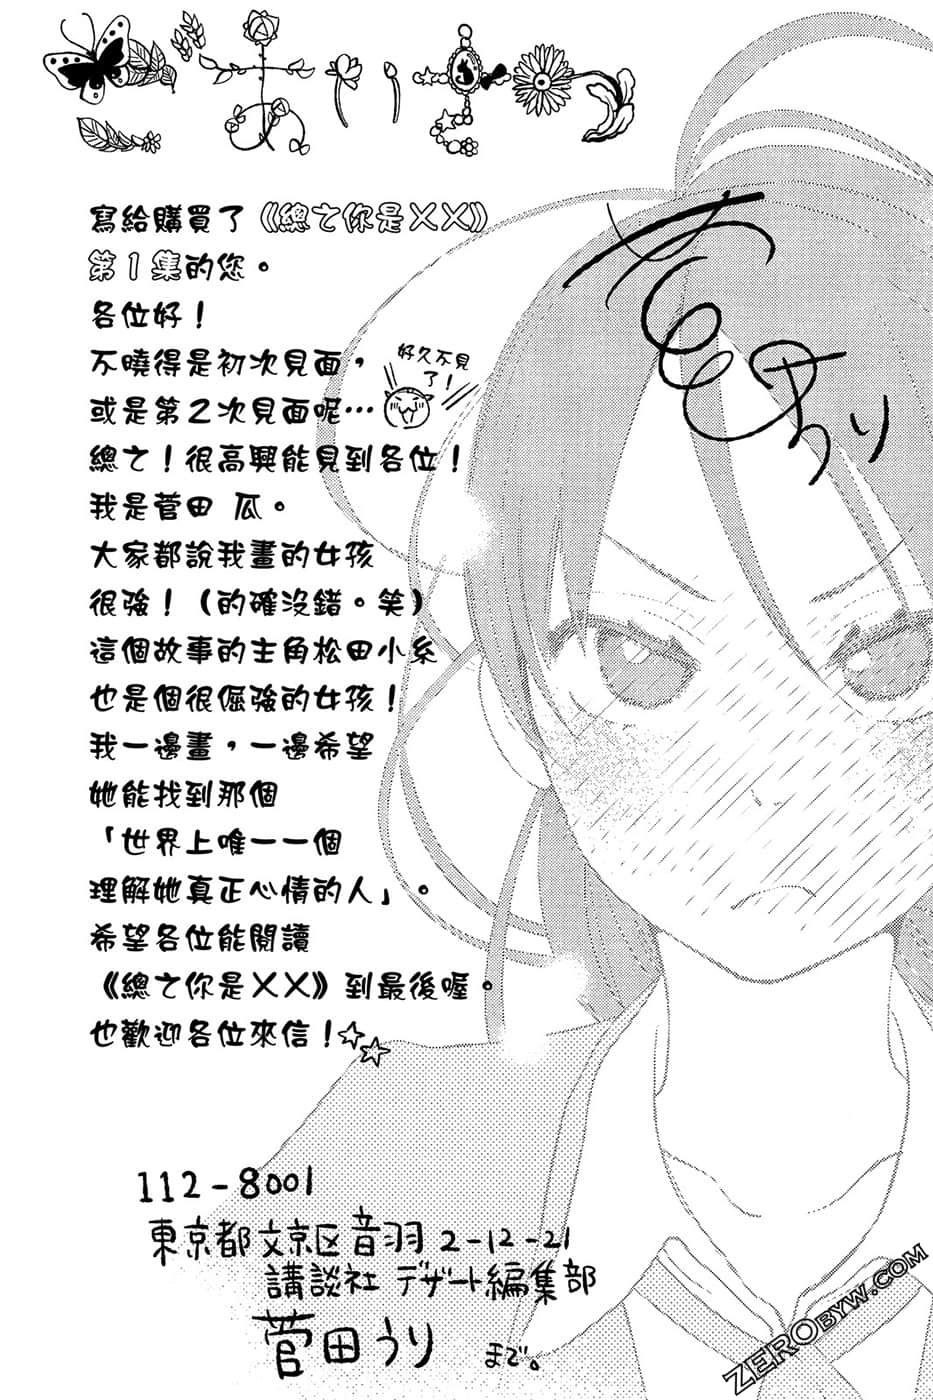 寫給購買了《總之你是××》
第1集的您。
各位好！
不曉得是初次見面，
或是第2次見面呢…
好久不見
了！
總之！很高興能見到各位！
我是菅田 瓜。
大家都說我畫的女孩
很強！（的確沒錯。笑）
這個故事的主角松田小糸
也是個很倔強的女孩！
我一邊畫，一邊希望
她能找到那個
「世界上唯一一個
理解她真正心情的人」。
希望各位能閱讀
《總之你是××》到最後喔。
也歡迎各位來信！
112-8001
東京都文京区音羽 2-12-21
講談社 デザート編集部
菅田うり まで。
ZEROBYW.COM